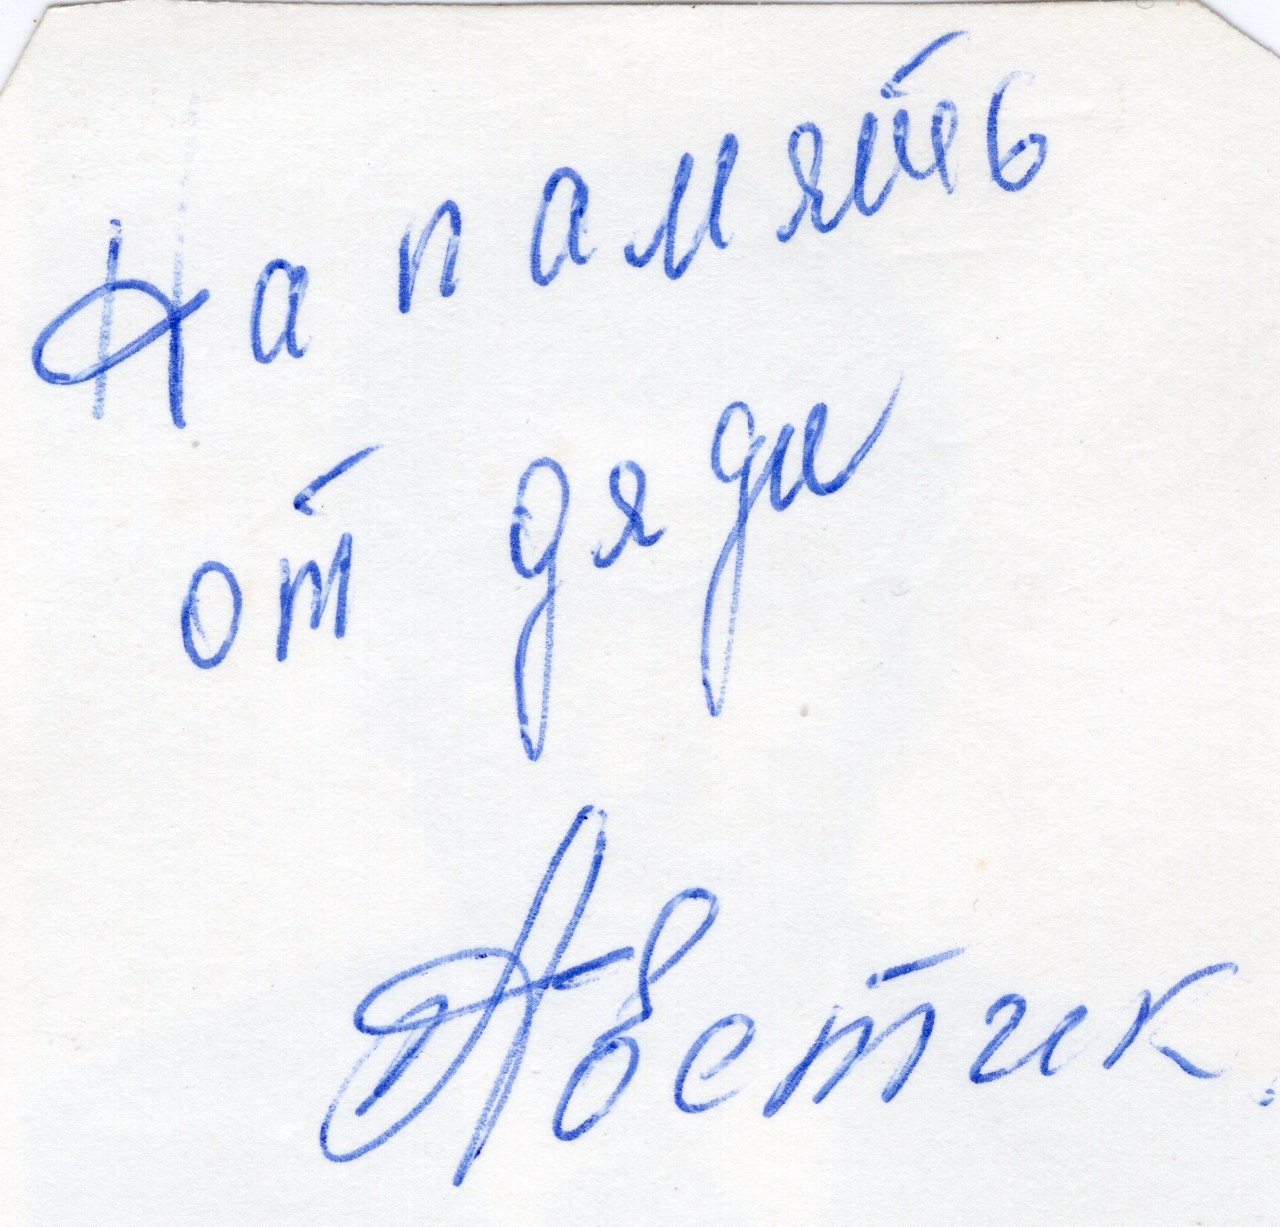 На память
от дяди
Аветик.